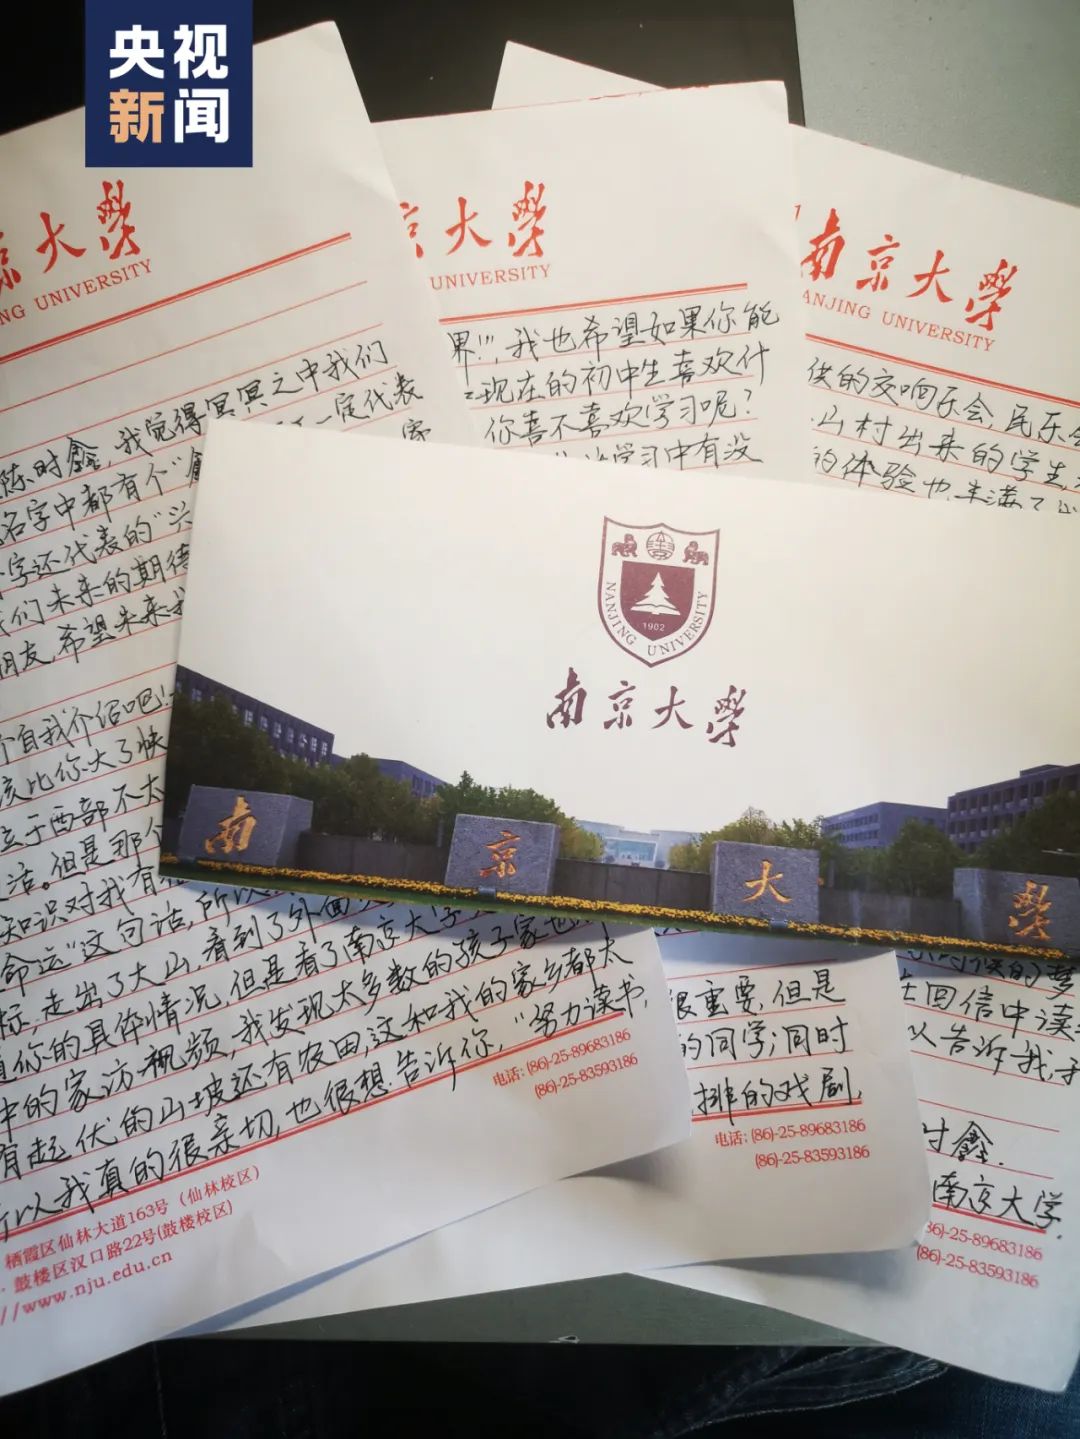 央视
新闻
京大學
NG UNIVERSITY
陈时鑫,我觉得冥冥之中我们
一定代表
名字中都有个"
字还代表的"兴
我们未来的期待
朋友,希望未来
个自我介绍吧!
该比你大了快
于西部不太
活。但是那个
知识对我有
命运"这句话,所以
标,走出了大山,看到了外面
你的具体情况,但是看了南京大学
中的家访视频,我发现太多数的孩子家也
有起伏的山坡还有农田,这和我的家乡都太
所以我真的很亲切,也很想告诉你,"努力读书,
电话: (86)-25-89683186
(86)-25-83593186
栖霞区仙林大道163号(仙林校区)
鼓楼区汉口路22号(鼓楼校区)
//www.nju.edu.cn
京大學
UNIVERSITY
界!!",我也希望如果你能
现在的初中生喜欢什
你喜不喜欢学习呢?
学习中有没
很重要,但是
的同学;同时
排的戏剧,
电话: (86)-25-89683186
(86)-25-83593186
南京大學
ANJING UNIVERSITY
供的交响乐会,民乐会
山村出来的学生
的体验也丰满了
在回信中读
以告诉我
时鑫.
南京大学.
86)-25-89683186
(86)-25-83593186
NANJING UNIVERSITY
1902
南京大學
南京大學